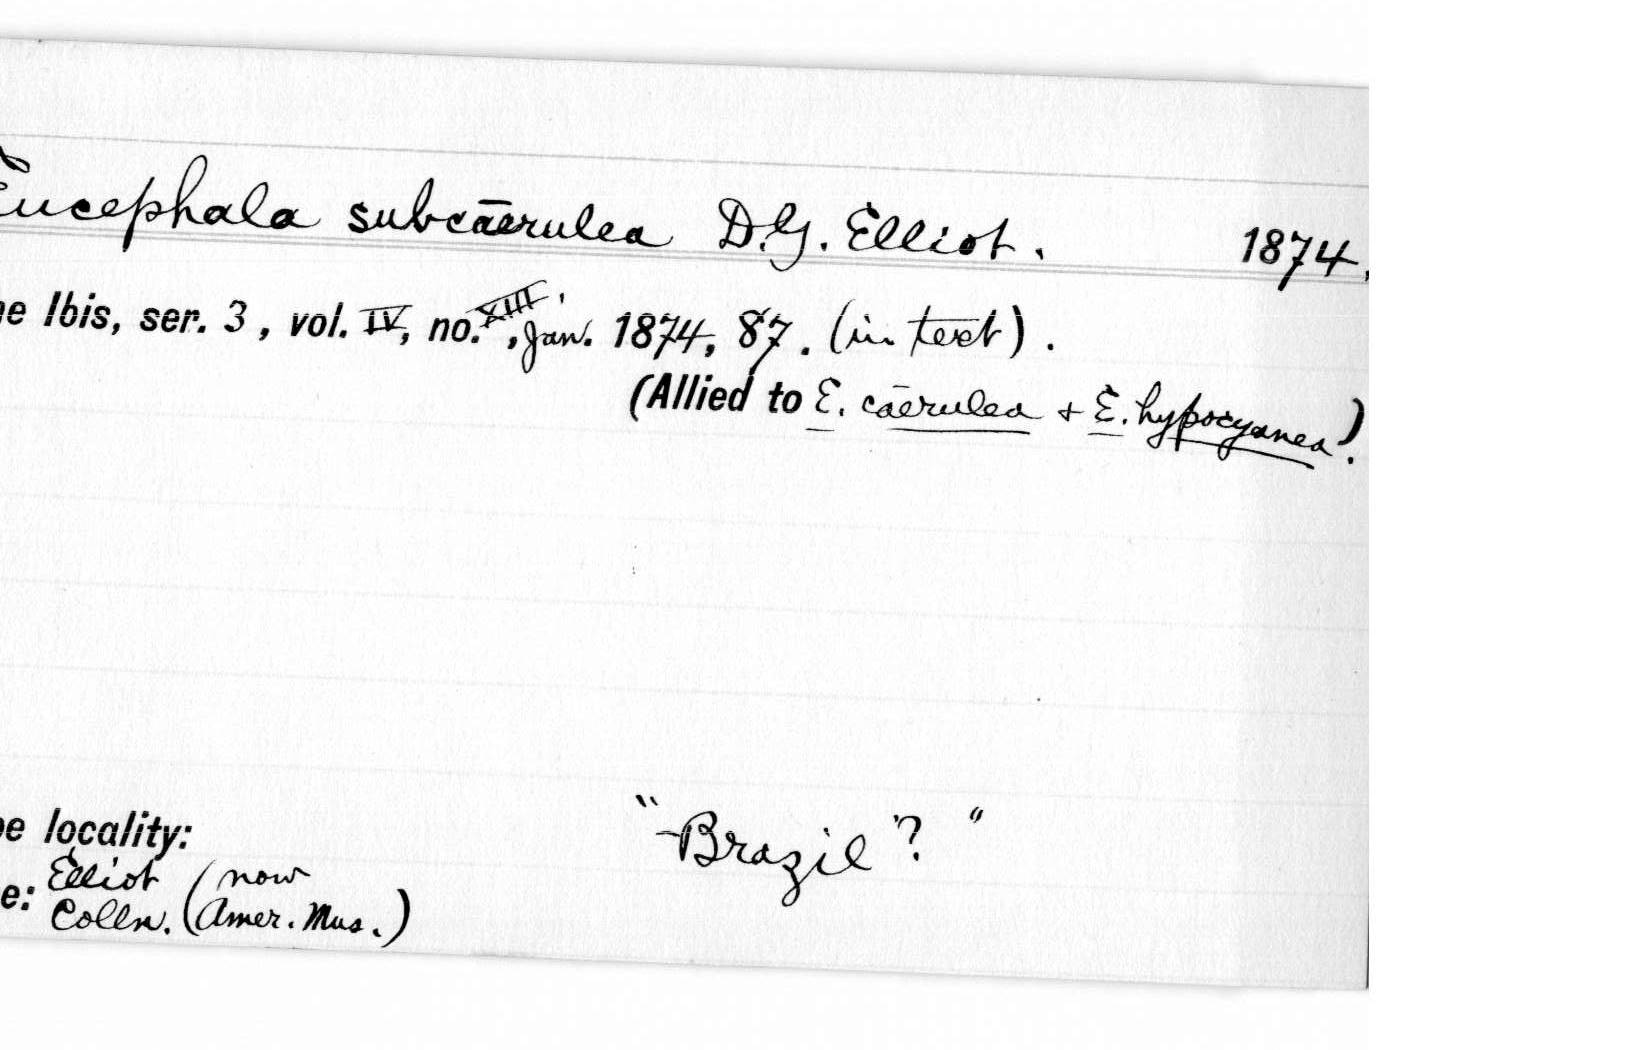 Eucephala subcāerulea D.G. Elliot. 1874.
he Ibis, ser. 3, vol. IV, no. XIII, Jan. 1874, 87. (in text).
(Allied to E. cāerulea + E. hypocyanea).
pe locality: "Brazil?"
e: Elliot Colln. (now Amer. Mus.)